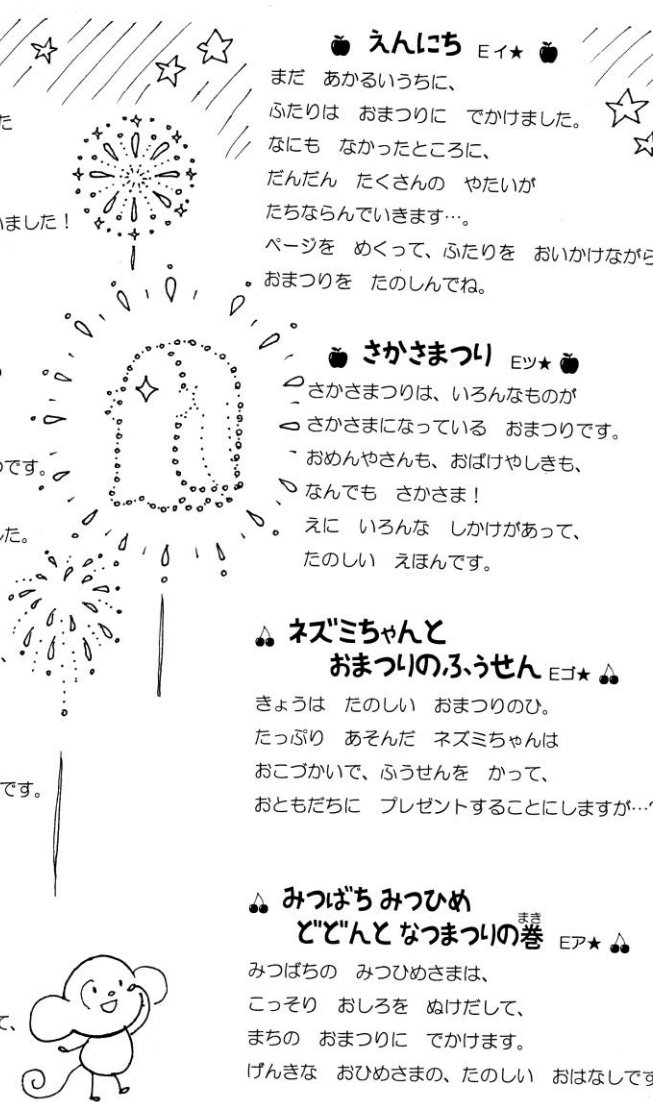 た
いました！
です。
した。
、
です。
て、
えんにち Eイ★
まだ あかるいうちに、
ふたりは おまつりに でかけました。
なにも なかったところに、
だんだん たくさんの やたいが
たちならんでいきます…。
ページを めくって、ふたりを おいかけながら
おまつりを たのしんでね。
さかさまつり Eツ★
さかさまつりは、いろんなものが
さかさまになっている おまつりです。
おめんやさんも、おばけやしきも、
なんでも さかさま！
えに いろんな しかけがあって、
たのしい えほんです。
ネズミちゃんと
おまつりのふうせん Eゴ★
きょうは たのしい おまつりのひ。
たっぷり あそんだ ネズミちゃんは
おこづかいで、ふうせんを かって、
おともだちに プレゼントすることにしますが…
みつばち みつひめ
どどんと なつまつりの巻 Eア★
まき
みつばちの みつひめさまは、
こっそり おしろを ぬけだして、
まちの おまつりに でかけます。
げんきな おひめさまの、たのしい おはなしです